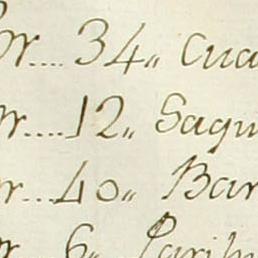 or.... 34,, Cua
or.... 12,, Saqu
or.... 40,, Bar
or 6,,